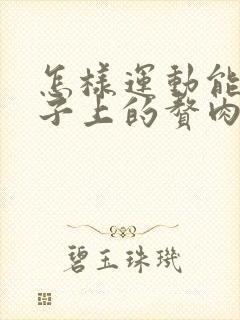 怎樣運動能
子上的贅肉
碧玉珠璣